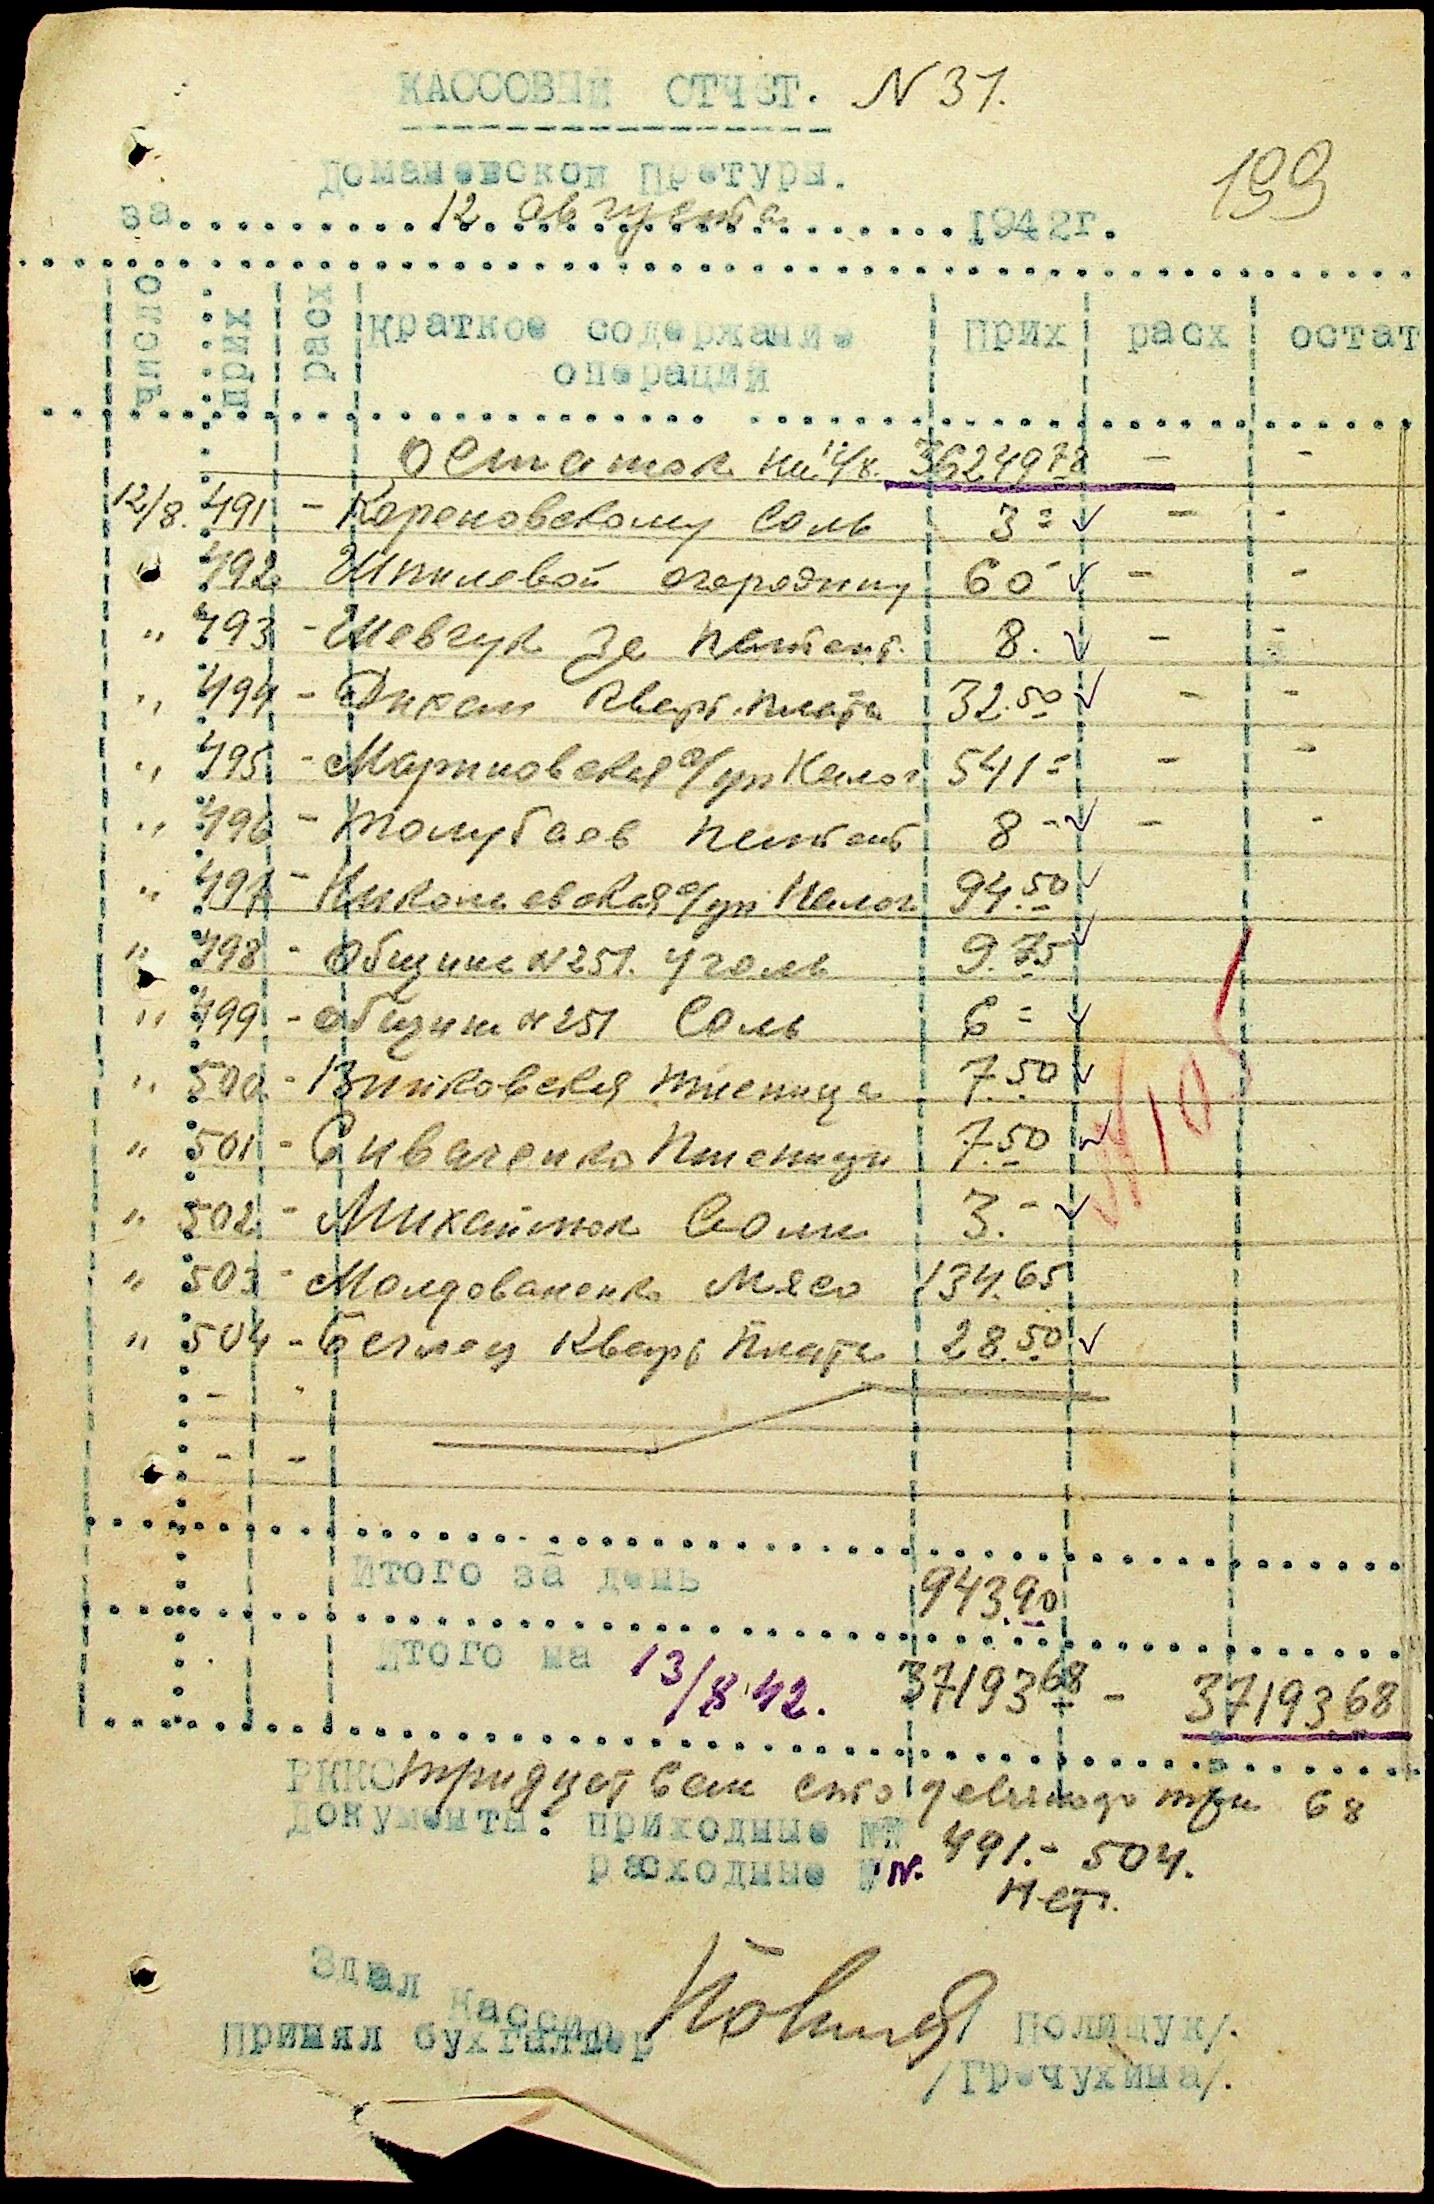 КАССОВЫЙ ОТЧЕТ. N 31.
199
Доманевской Претуры.
за 12 августа 1942г.
число прих расх Краткое содержание операций Прих расх остат
Остаток на 12/8. 36249 78 - -
12/8. 491 - Кореновскому Соль 3 = - -
492 Шпилевой огородину 60 - - -
" 493 - Шевчук За патент. 8. - -
" 494 - Дикан Кварт. плата 32.50 - -
" 495 - Мариновская с/уп Налог 541 = - -
" 496 - Толубаев патент 8 - - -
" 497 - Николаевская с/уп Налог 94.50
" 498 - Община N 251. Уголь 9.75
" 499 - Община N 251 Соль 6 =
" 500 - пшеница 7.50
" 501 - Сиваченко Пшеницы 7.50
" 502 - Михайлюк Соли 3. -
" 503 - Молдованенко Мясо 134.65
" 504 - Кварт Плата 28.50
- -
- -
Итого за день 943.90
Итого на 13/8 42. 37193 68 - 37193.68
РККС тридцат сем сто девяносто три 68
Документы: приходные №№ 491. - 504.
расходные №N. Нет.
Здал Кассир /Полищук/.
Принял бухгалтер /Гречухина/.